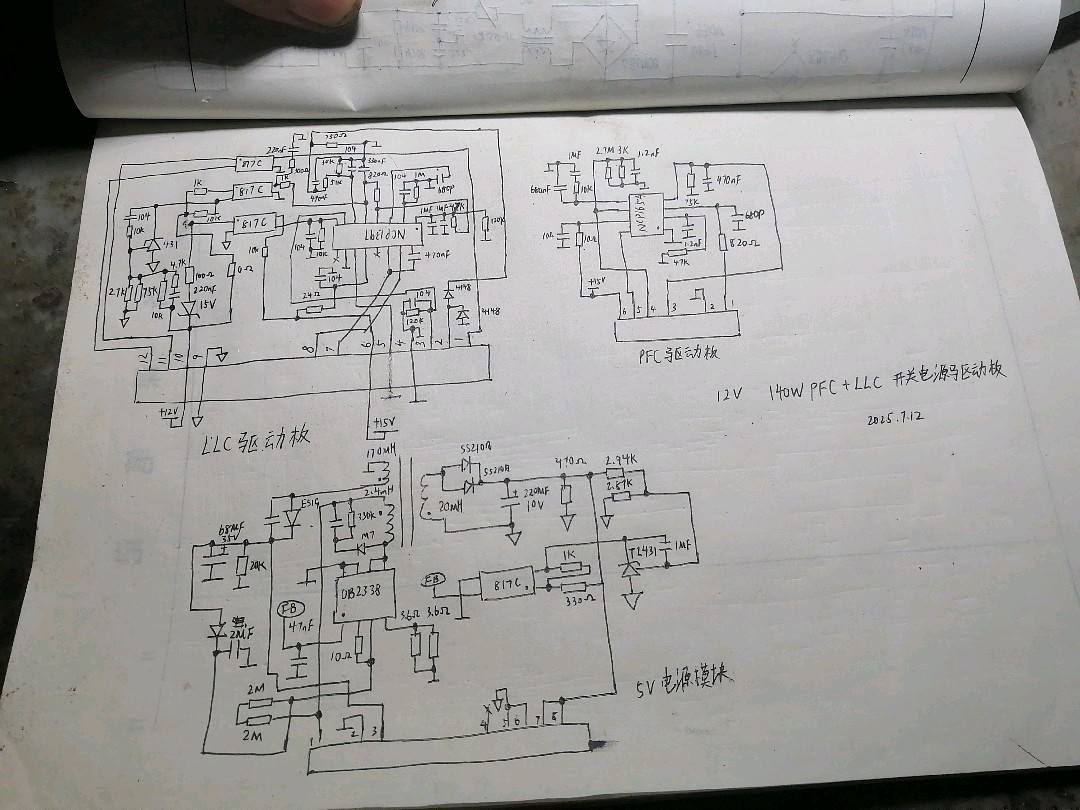 750Ω
220nF
104
817C
300Ω
10K
330nF
1K
817C
1K
51K
820Ω
104
1M
470nF
680P
104
10K
817C
1MF
1MF
4.7K
120K
10K
431
NCP1397
10K
104
10K
470nF
4.7K
100Ω
0Ω
104
2.7K
75K
220nF
15V
10K
24Ω
104
120K
4148
4148
12
11
10
9
8
7
6
5
4
3
2
1
+12V
+15V
LLC 驱动板
1MF
2.7M
3K
1.2nF
680nF
10K
470nF
NCP1654
75K
680P
10Ω
1.2nF
47K
820Ω
+15V
6
5
4
3
2
1
PFC 驱动板
12V 140W PFC+LLC 开关电源驱动板
2025.7.12
170MH
SS210A
SS210A
2.4mH
20MH
220MF
10V
470Ω
2.94K
2.87K
ES1G
330K
M7
68MF
35V
20K
OB2338
FB
817C
1K
330Ω
TL431
1MF
FB
47nF
2MF
10Ω
3.6Ω
3.6Ω
2M
2M
1
2
3
4
5
6
7
8
5V 电源模块